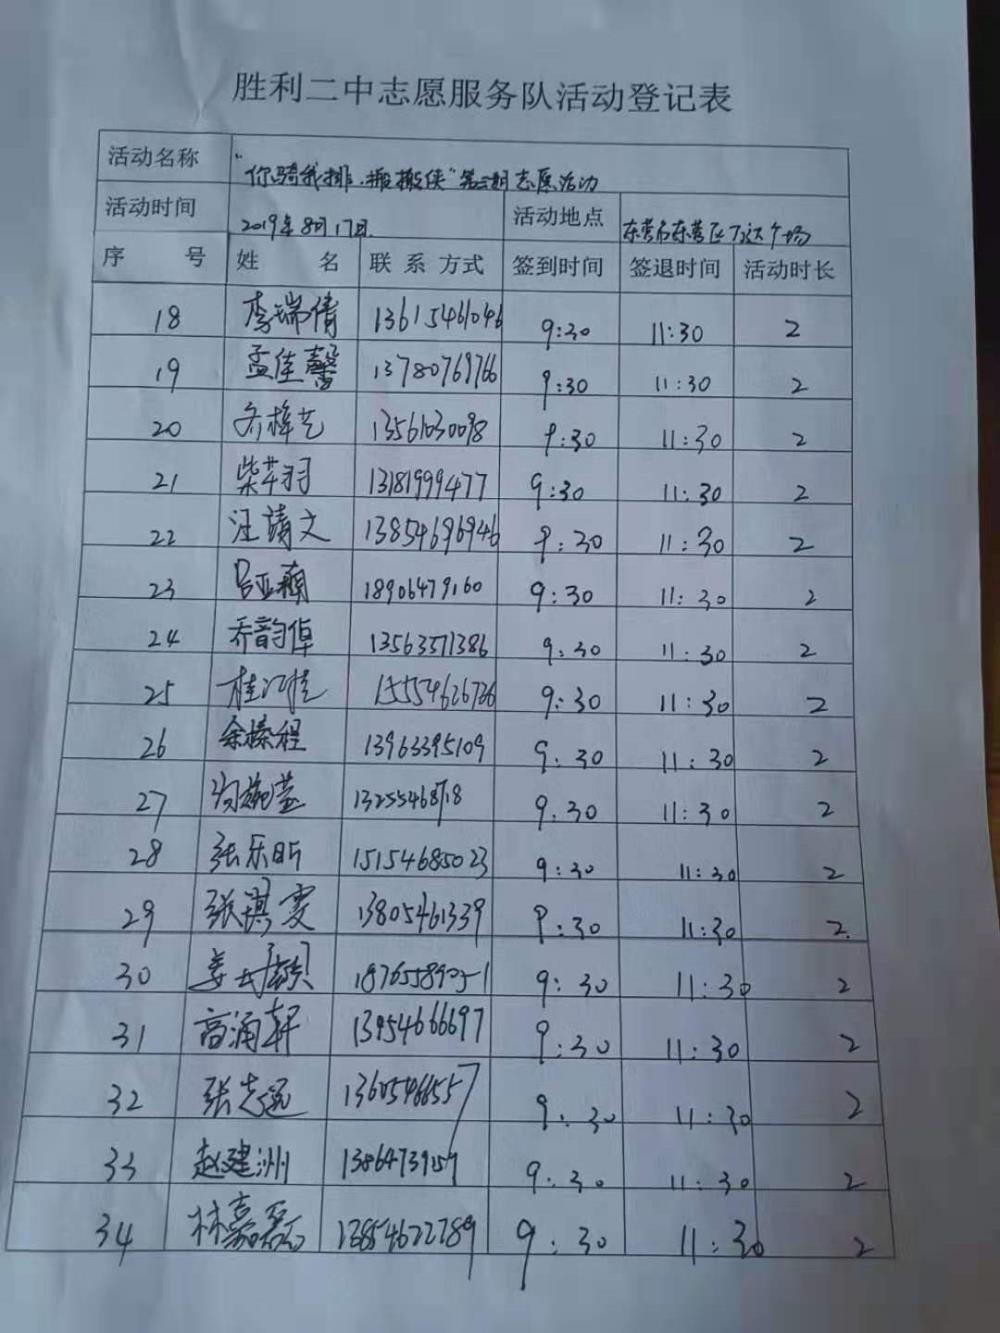 胜利二中志愿服务队活动登记表
活动名称 "你骑我排,搬搬侠"第三期志愿活动
活动时间 2019年8月17日. 活动地点 东营市东营区万达广场
序 号 姓 名 联 系 方式 签到时间 签退时间 活动时长
18 李瑞倩 13615461046 9:30 11:30 2
19 孟佳馨 13780769766 9:30 11:30 2
20 齐梓艺 13561030098 9:30 11:30 2
21 柴羽 13181999477 9:30 11:30 2
22 汪靖文 13854696946 9:30 11:30 2
23 吕亚颖 18906479160 9:30 11:30 2
24 乔韵倬 13563571386 9:30 11:30 2
25 桂 15554626726 9:30 11:30 2
26 余榛程 13963395109 9:30 11:30 2
27 13255468718 9:30 11:30 2
28 张乐昕 15154685023 9:30 11:30 2
29 张祺雯 13805461339 9:30 11:30 2.
30 姜 9:30 11:30 2
31 高涌轩 13954666697 9:30 11:30 2
32 张志远 13605468557 9:30 11:30 2
33 赵建洲 9:30 11:30 2
34 林嘉磊 13854622789 9:30 11:30 2